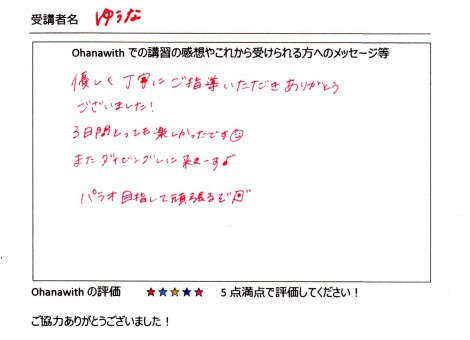 受講者名 ゆうな
Ohanawith での講習の感想やこれから受けられる方へのメッセージ等
優しく丁寧にご指導いただきありがとう
ございました!
3日間とっても楽しかったです
またダイビングしに来まーす♪
パラオ目指して頑張るぞ
Ohanawith の評価 ★★★★★ 5点満点で評価してください!
ご協力ありがとうございました!